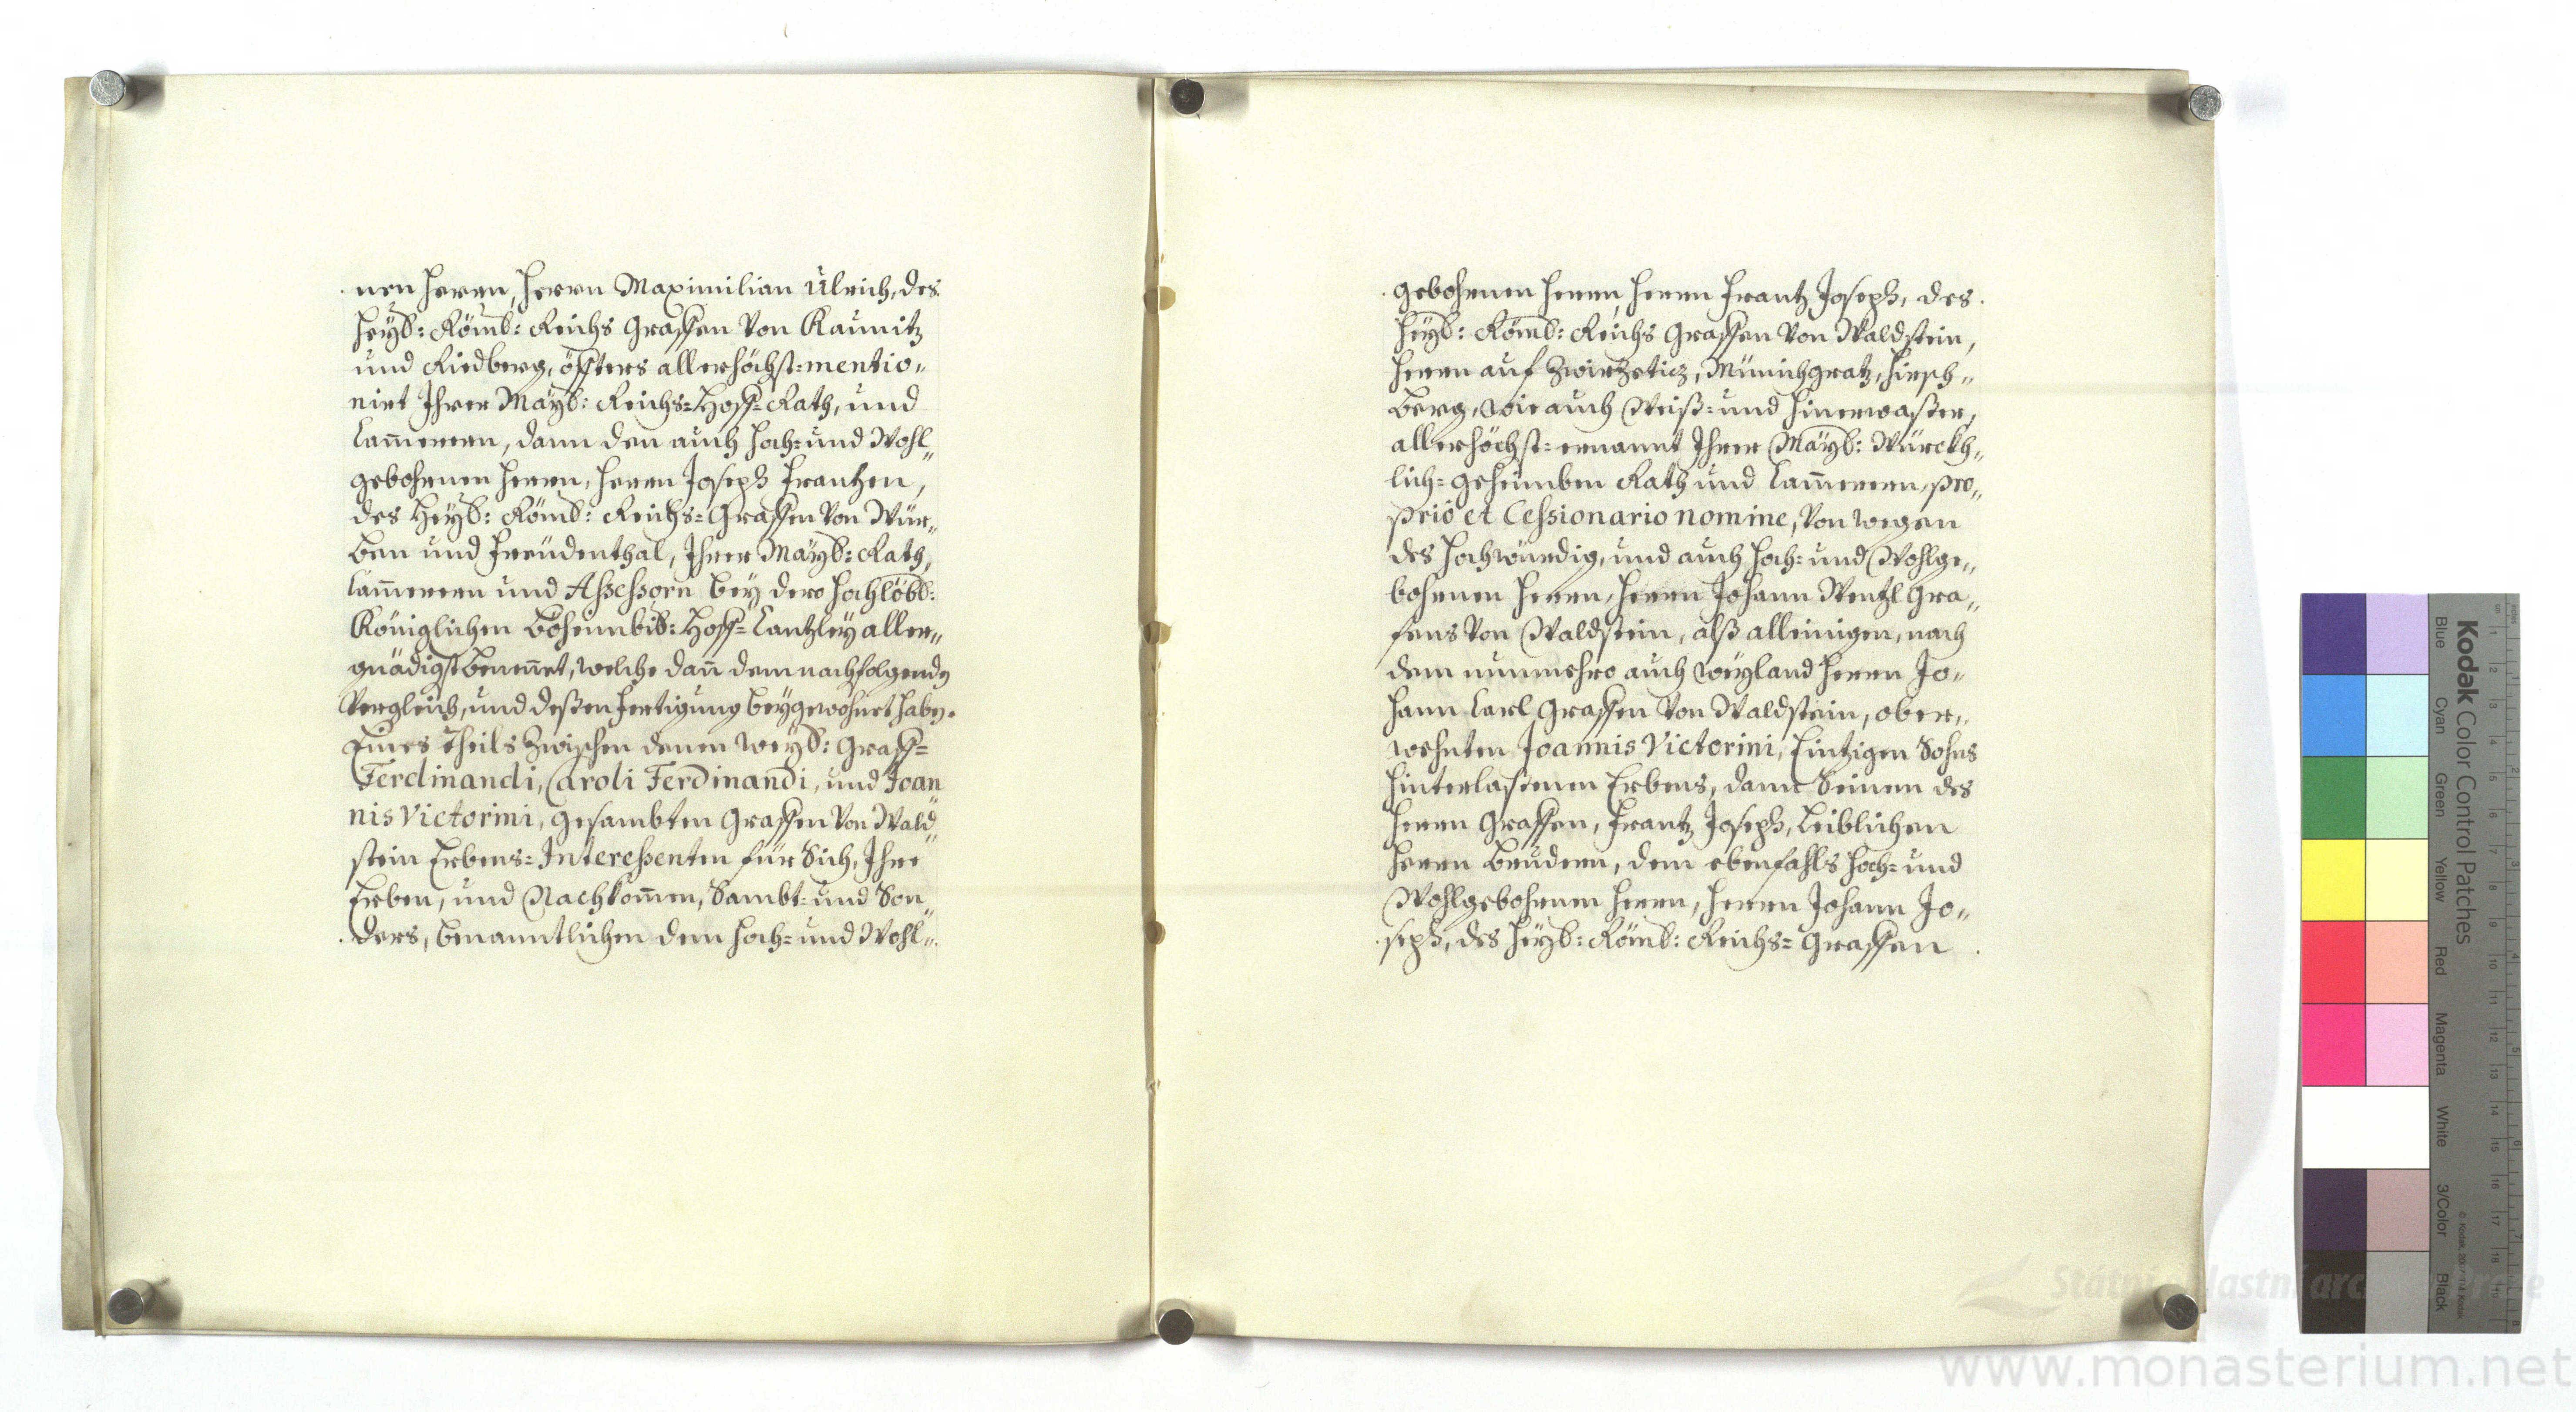 nen Herrn, Herrn Maximilian Ulrich, des
Heyl: Röml: Reichs Graffen Von Kaunitz
und Riedberg, öffters allerhöchst=mentio„
nirt Ihrer Mayl: Reichs=Hoff=Rath, und
Cam̄erern, dann den auch Hoch= und Wohl„
gebohrnen Herrn, Herrn Joseph Frantzen,
des Heyl: Röml: Reichs=Graffen Von Wür„
ben und Freüdenthal, Ihrer Mayl: Rath,
Cam̄erern und Assessorn bey dero Hochlöbl:
Königlichen Böheimbil: Hoff=Cantzley aller„
gnädigst benen̄et, welche dan̄ dem nachfolgend
Vergleich, und deßen Fertigung beygewohnet haben.
Eines Theils zwischen denen Weyl: Graff=
Ferdinandi, Caroli Ferdinandi, und Joan„
nis Victorini, gesambten Graffen Von Wald„
stein Erbens=Interessenten für Sich, Ihre
Erben, und Nachkom̄en, Sambt= und Son„
ders, benanntlichen dem Hoch= und Wohl„
gebohrnen Herrn, Herrn Frantz Joseph, des
Heyl: Röml: Reichs Graffen Von Waldstein,
Herrn auf Zwirzeticz, Münichgratz, Hirsch„
berg, wie auch Weiß= und Hinerwaßer,
allerhöchst=ernannt Ihrer Mayl: Würckh„
lich=geheimben Rath und Cam̄erern, pro„
prio et Cessionario nomine, Von wegen
des Hochwürdig, und auch Hoch= und Wohlge„
bohrnen Herrn, Herrn Johann Wentzl Gra„
fens Von Waldstein, alß alleinigen, nach
dem nunmehro auch weyland Herrn Jo„
hann Carl Graffen Von Waldstein, ober„
wehnten Joannis Victorini, Eintzigen Sohns
hinterlaßenen Erbens, dann Seinen des
Herrn Graffen, Frantz Joseph, Leiblichen
Herrn Brudern, dem ebenfahls Hoch= und
Wohlgebohrnen Herrn, Herrn Johann Jo„
seph, des Heyl: Röml: Reichs=Graffen
Kodak Color Control Patches
Blue Cyan Green Yellow Red Magenta White 3/Color Black
www.monasterium.net